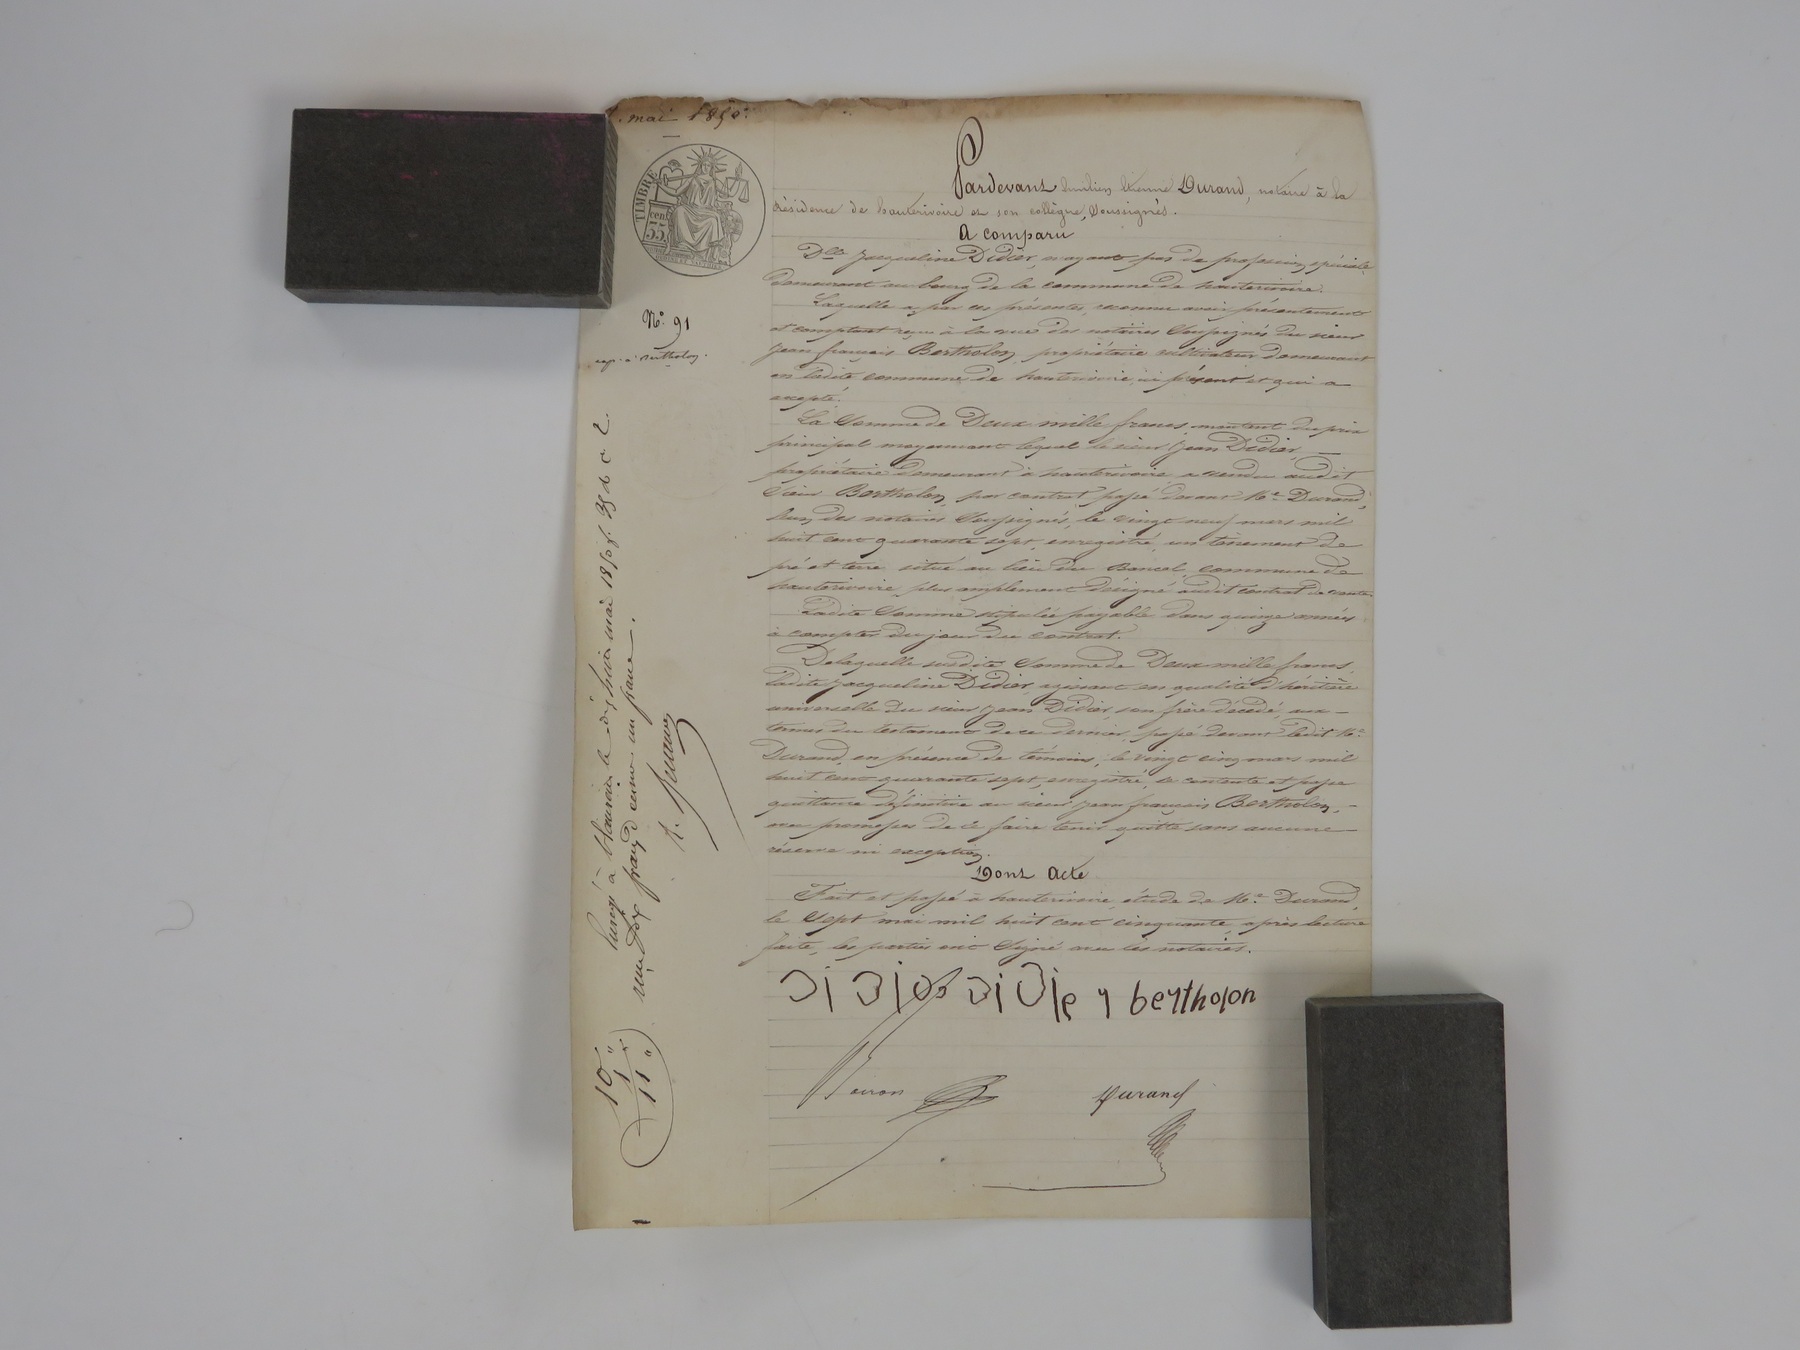 mai 1850.
TIMBRE
cen
35
N° 91
exp. à Bertholon.
Pardevant Durand, notaire à la
résidence de hauterivoire et son collègue, soussignés.
A comparu
Dlle Jacqueline Didier, n'ayant pas de profession spéciale
demeurant au bourg de la commune de hauterivoire.
Laquelle a par ces présentes, reconnu avoir présentement
et comptant reçu à la vue des notaires soussignés du sieur
Jean françois Bertholon, propriétaire cultivateur demeurant
en ladite commune de hauterivoire, ici présent et qui a
accepté.
La Somme de Deux mille francs, montant du prix
principal moyennant lequel le sieur Jean Didier,
propriétaire demeurant à hauterivoire, a vendu audit
sieur Bertholon, par contrat passé devant Me Durand,
l'un des notaires soussignés, le vingt neuf mars mil
huit cent quarante sept, enregistré, un tènement de
pré et terre situé au lieu du Bancel, commune de
hauterivoire, plus amplement désigné audit contrat de vente.
Ladite Somme stipulée payable dans quinze années
à compter du jour du contrat.
De laquelle susdite Somme de Deux mille francs,
ladite Jacqueline Didier, agissant en qualité d'héritière
universelle du sieur Jean Didier, son frère décédé, aux
termes du testament de ce dernier, passé devant ledit Me
Durand, en présence de témoins, le vingt cinq mars mil
huit cent quarante sept, enregistré, se contente et passe
quittance définitive au sieur Jean françois Bertholon,
avec promesse de le faire tenir quitte sans aucune
réserve ni exception.
Dont Acte
Fait et passé à hauterivoire, étude de Me Durand,
le Sept mai mil huit cent cinquante, après lecture
faite, les parties ont Signé avec les notaires.
Didie bertholon
Durand
Enregé à le dix huit mai 1850 f. 35 c 2.
reçu dix francs décime un franc.
10 "
1 "
11 "